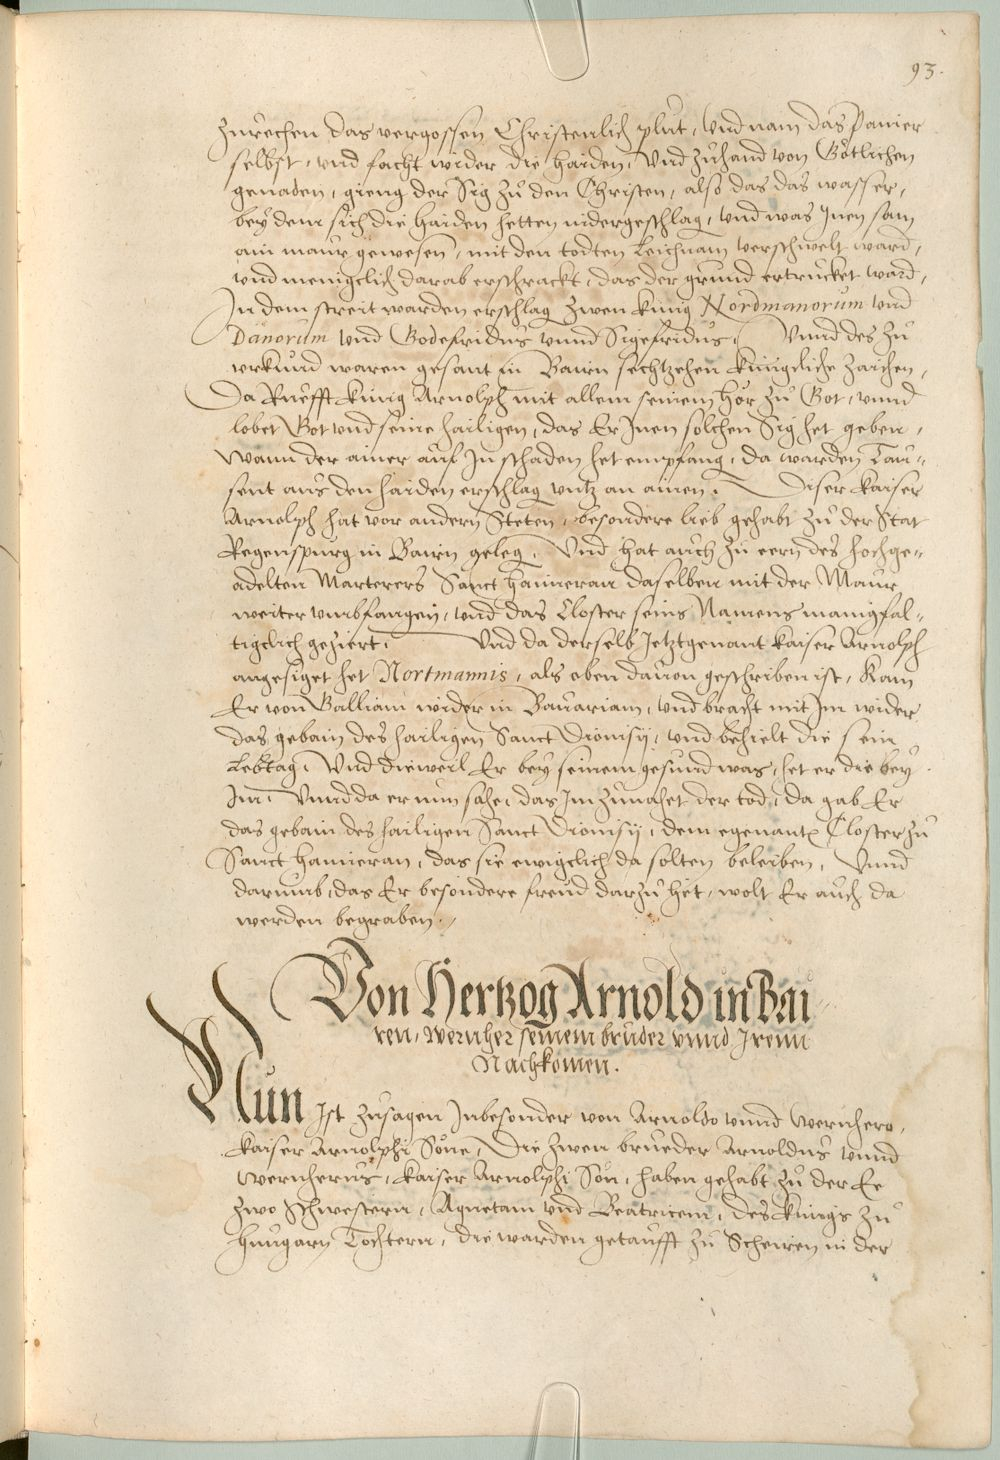 93.
zurechen das vergossen Christenlich plut, und nam das Panier
selbst, und facht wider die haiden, Und zuhand von Götlichen
genaden, gieng der Sig zu den Christen, also das das wasser,
bey dem sich die haiden hetten nidergeschlag, und was Inen sam
ain maur gewesen, mit den todten Leichnam verschwelt ward,
und menigclich darab erschrackt, das der grund ertrucket ward,
In dem streit warden erschlag zwen künig Nordmanorum und
Danorum und Godefridus unnd Sigefridus, Unnd des zu
urkund waren gesant in Bairn sechtzehen künigcliche zaichen,
Da Ruefft künig Arnolph mit allem seinem hör zu Got, unnd
lobet Got und seine hailigen, das Er Inen solchen Sig het geben,
Wann der ainer auf In schaden het empfang, da warden Tau-
sent aus den haiden erschlag untz an ainen. Diser kaiser
Arnolph hat vor andern Steten, besondere lieb gehabt zu der Stat
Regenspurg in Bairn geleg, Und hat auch zu eern des hochge-
adelten Marterers Sanct haimeran daselben mit der Maur
weiter umbfangen, und das Closter seins Namens manigfal-
tigclich geziert, Und da derselb Jetztgenant kaiser Arnolph
angesiget het Nortmannis, als oben davon geschriben ist, Kam
Er von Galliam wider in Bavariam, und bracht mit Im wider
das gebain des hailigen Sanct Dionisy, und behielt die sein
Lebtag, Und dieweil Er bey seinem gesund was, het er die bey
Im, Unnd da er nun sahe, das Im zunahet der tod, da gab Er
das gebain des hailigen Sanct Dionisy, dem egenanten Closter zu
Sanct haimeran, das sie ewigclich da solten beleiben, Unnd
darumb, das Er besondere freud darzu het, wolt Er auch da
werden begraben.
Von Hertzog Arnold in Bai
ren, Wernher seinem bruder unnd Irenn
Nachkomen.
Nun Ist zusagen Inbesonder von Arnoldo unnd Wernhero,
kaiser Arnolphi Söne, Die zwen brueder Arnoldus unnd
Wernherus, kaiser Arnolphi Sön, haben gehabt zu der Ee
zwo Schwestern, Agnetam und Beatricem, des künigs zu
hungarn Töchtern, die warden getaufft zu Scheiren in der